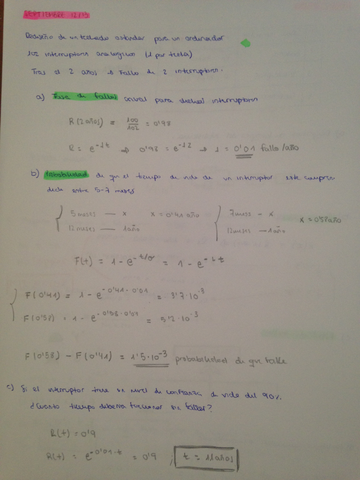 Basados de un teclado estándar para un ordenador
102 interruptores analógicos (1 por tecla)
Tras 2 años → fallo de 2 interruptores.
a) Tasa de fallos para dichos interruptores
R(2 años) = 100/102 = 0'98
R = e^-λt ⇒ 0'98 = e^-λ2 ⇒ λ = 0'01 fallo/año
b) Probabilidad de que el tiempo de vida de un interruptor esté compren
dido entre 5-7 meses
5 meses — x x = 0'41 año 7 meses — x x = 0'58 año
12 meses — 1 año 12 meses — 1 año
F(t) = 1 - e^-t/θ = 1 - e^-λt
F(0'41) = 1 - e^-0'41·0'01 =
F(0'58) = 1 - e^-0'58·0'01 =
F(0'58) - F(0'41) = 1'5·10^-3 probabilidad de que falle
c) Si el interruptor tiene un nivel de confianza de vida del 90%
¿Cuánto tiempo debería funcionar sin fallar?
R(t) = 0'9
R(t) = e^-0'01·t = 0'9 ,